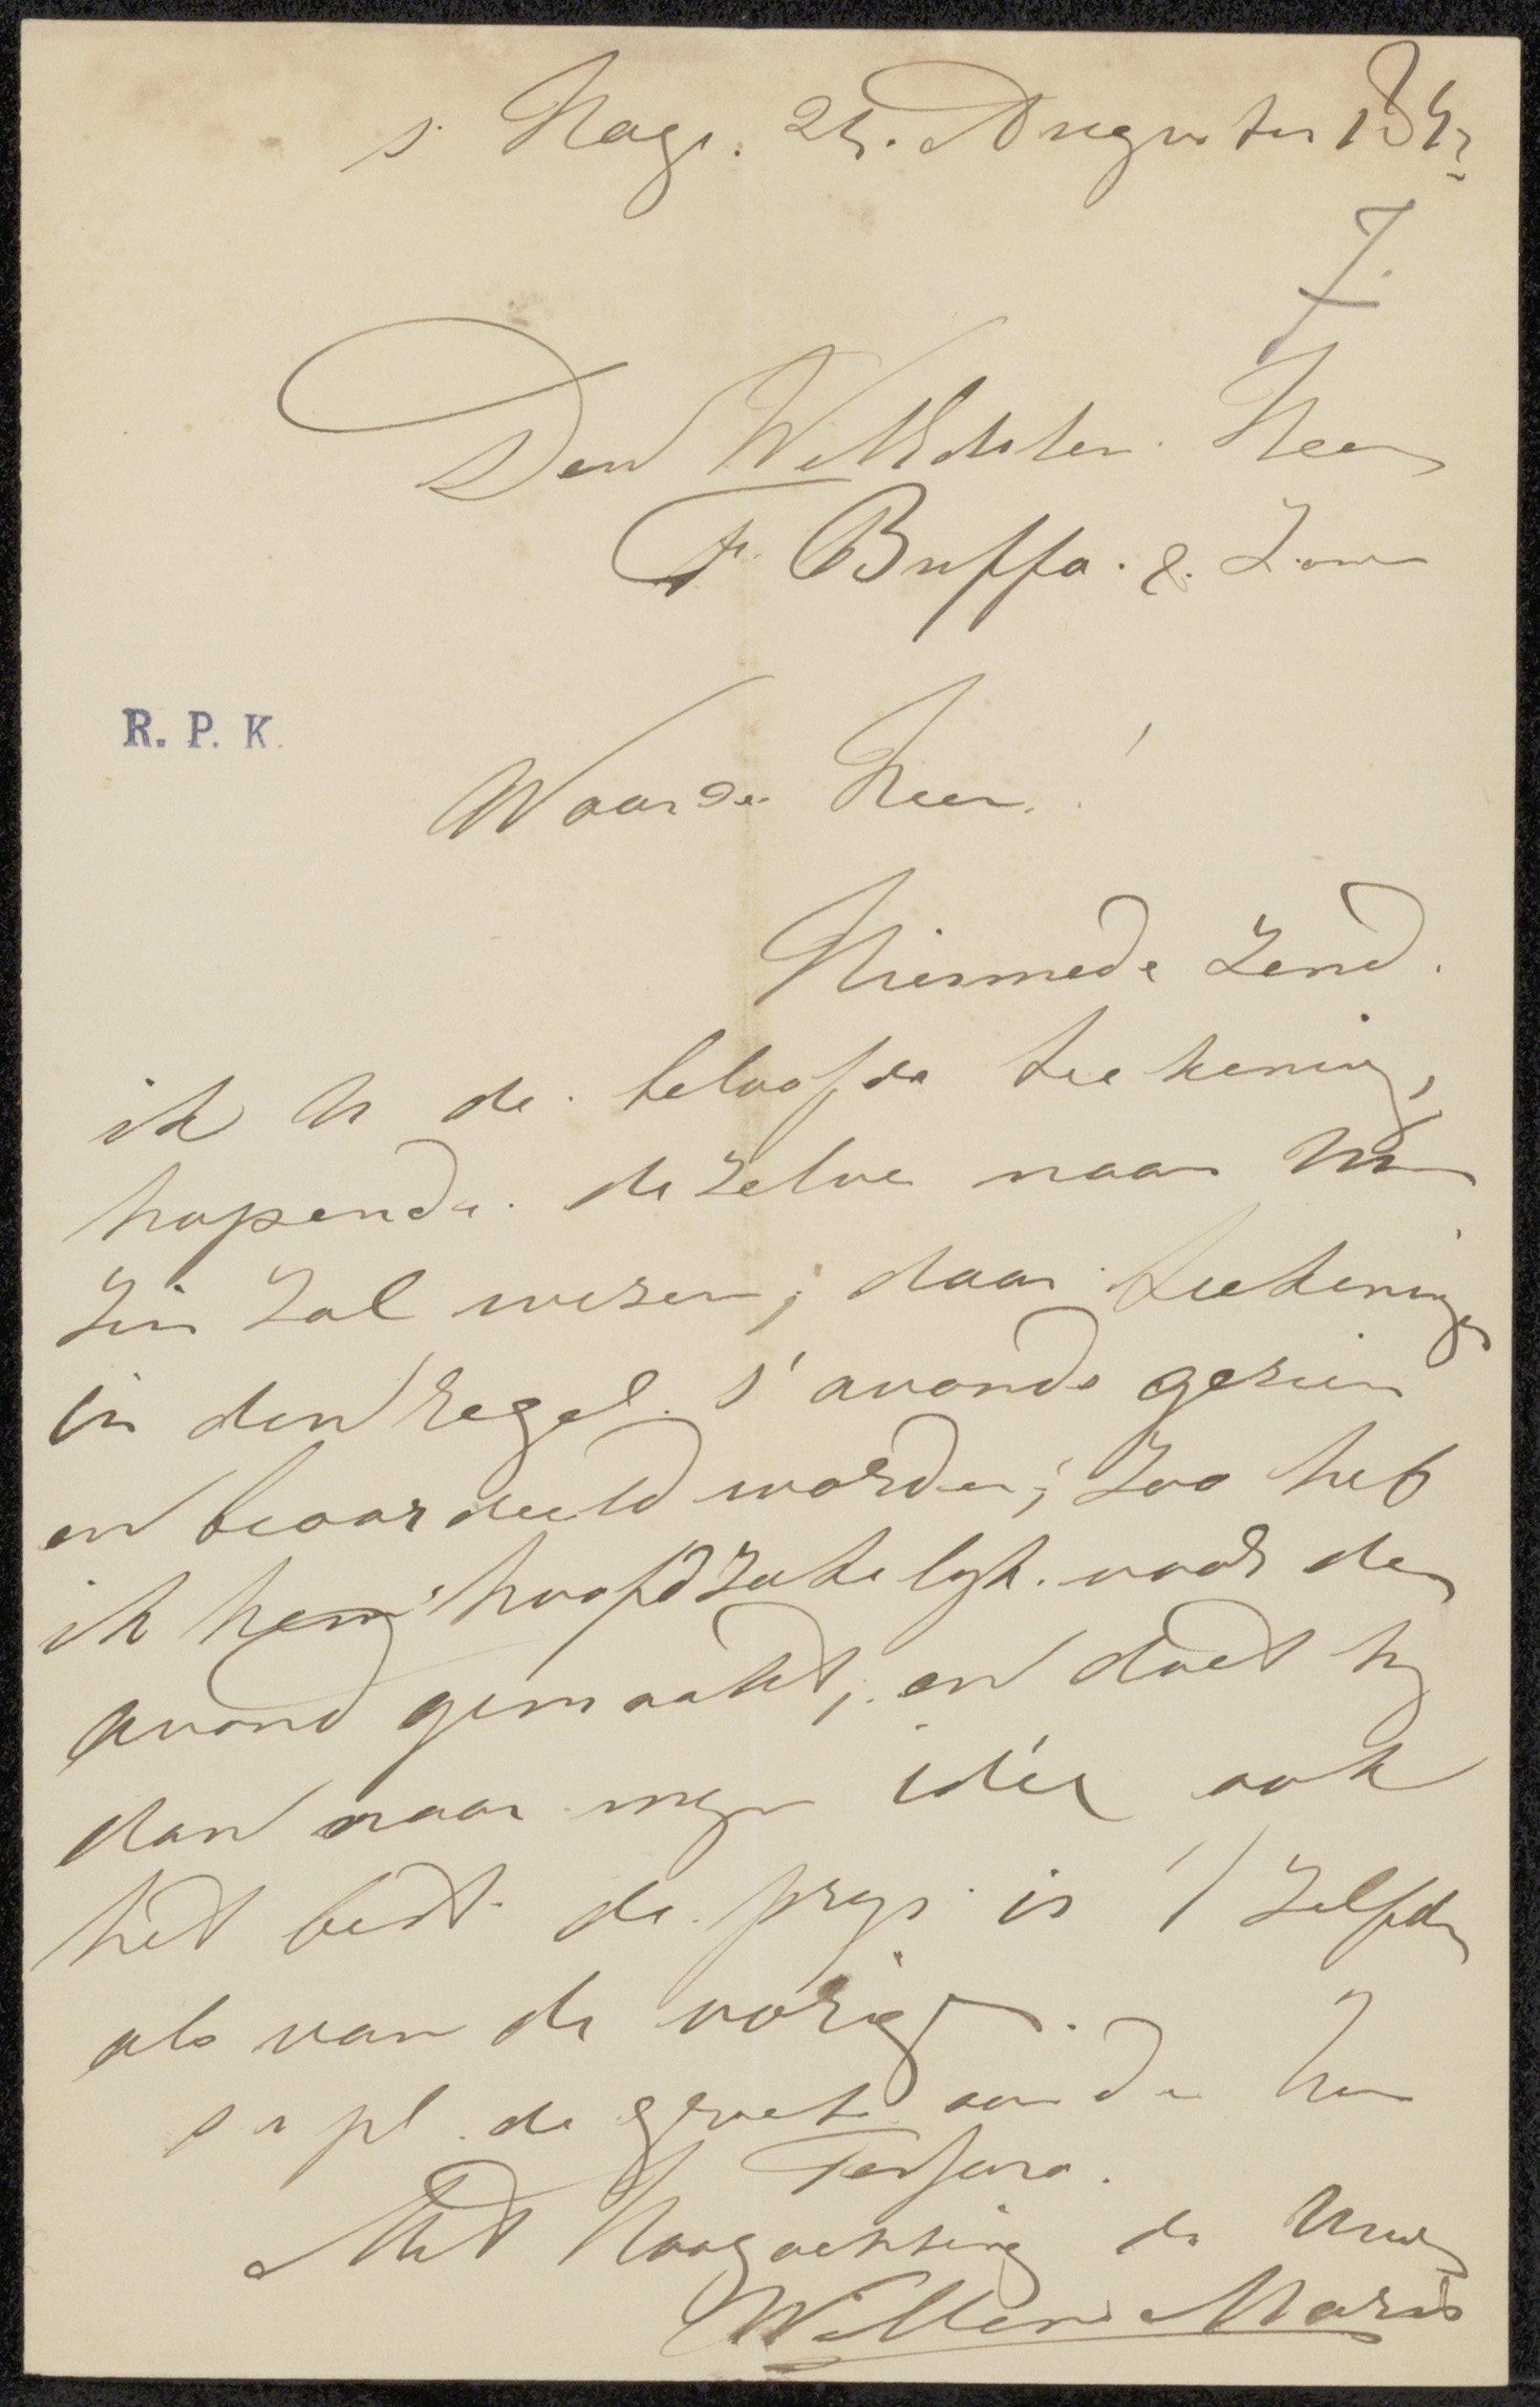 s' Hage. 25. Augustus 18
J.
Den WelEdelen Heer
F. Buffa. & Zonen
R. P. K.
Waarde Heer!
Hiermede zend.
ik U de beloofde teekening,
hopende dezelve naar Uw
zin zal wezen; daar teekeningen
in den regel s'avonds gezien
en beoordeeld worden; zoo heb
ik hem hoofdzakelyk. voor den
avond gemaakt; en doet hy
dan naar myn idée ook
het best. de prys is 't zelfde
als van de vorige.
s n pl. de groete aan den heer
Met Hoogachting de Uwe
Willem Maris